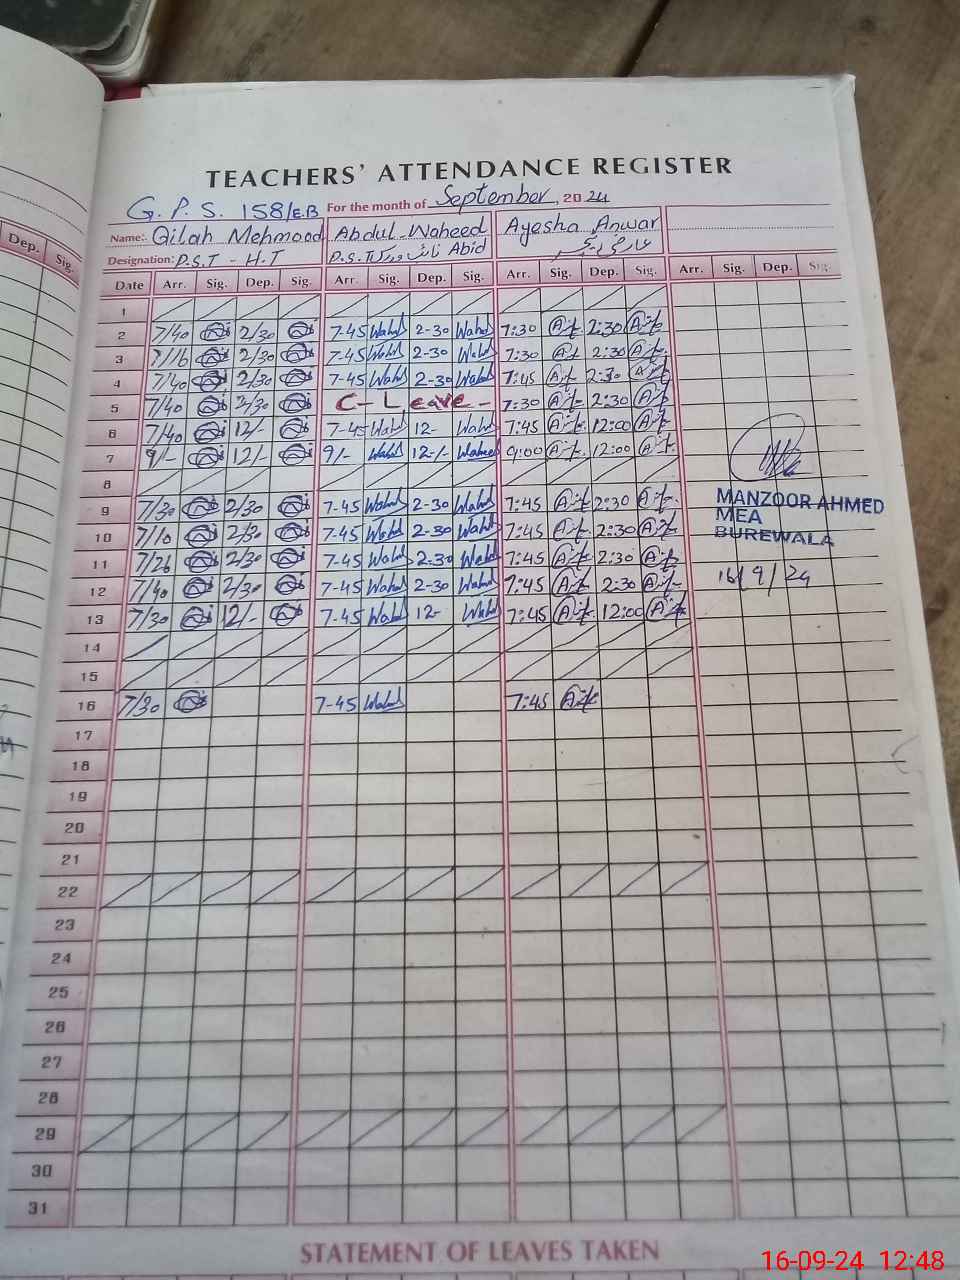 TEACHERS' ATTENDANCE REGISTER
G.P.S. 158/E.B For the month of September, 2024
Name: Qilah Mehmood Abdul Waheed Ayesha Anwar
Designation: P.S.T - H.T P.S.T Abid
Dep. Sig.
Date Arr. Sig. Dep. Sig. Arr. Sig. Dep. Sig. Arr. Sig. Dep. Sig. Arr. Sig. Dep. Sig.
1
2 7/40 2/30 7-45 Wahd 2-30 Wahd 7:30 2:30
3 7/16 2/30 7-45 Wahd 2-30 Wahd 7:30 2:30
4 7/40 2/30 7-45 Wahd 2-30 Wahd 7:45 2:30
5 7/40 2/30 C-Leave- 7:30 2:30
6 7/40 12/- 7-45 Wahd 12- Wahd 7:45 12:00
7 9/- 12/- 9/- Wahd 12-/- Waheed 9:00 12:00
8
9 7/30 2/30 7-45 Wahd 2-30 Wahd 7:45 2:30
10 7/10 2/30 7-45 Wahd 2-30 Wahd 7:45 2:30
11 7/26 2/30 7-45 Wahd 2-30 Wahd 7:45 2:30
12 7/40 2/30 7-45 Wahd 2-30 Wahd 7:45 2:30
13 7/30 12/- 7-45 Wahd 12- Wahd 7:45 12:00
14
15
16 7/30 7-45 Wahd 7:45
17
18
19
20
21
22
23
24
25
26
27
28
29
30
31
MANZOOR AHMED
MEA
BUREWALA
16/9/24
STATEMENT OF LEAVES TAKEN
16-09-24 12:48